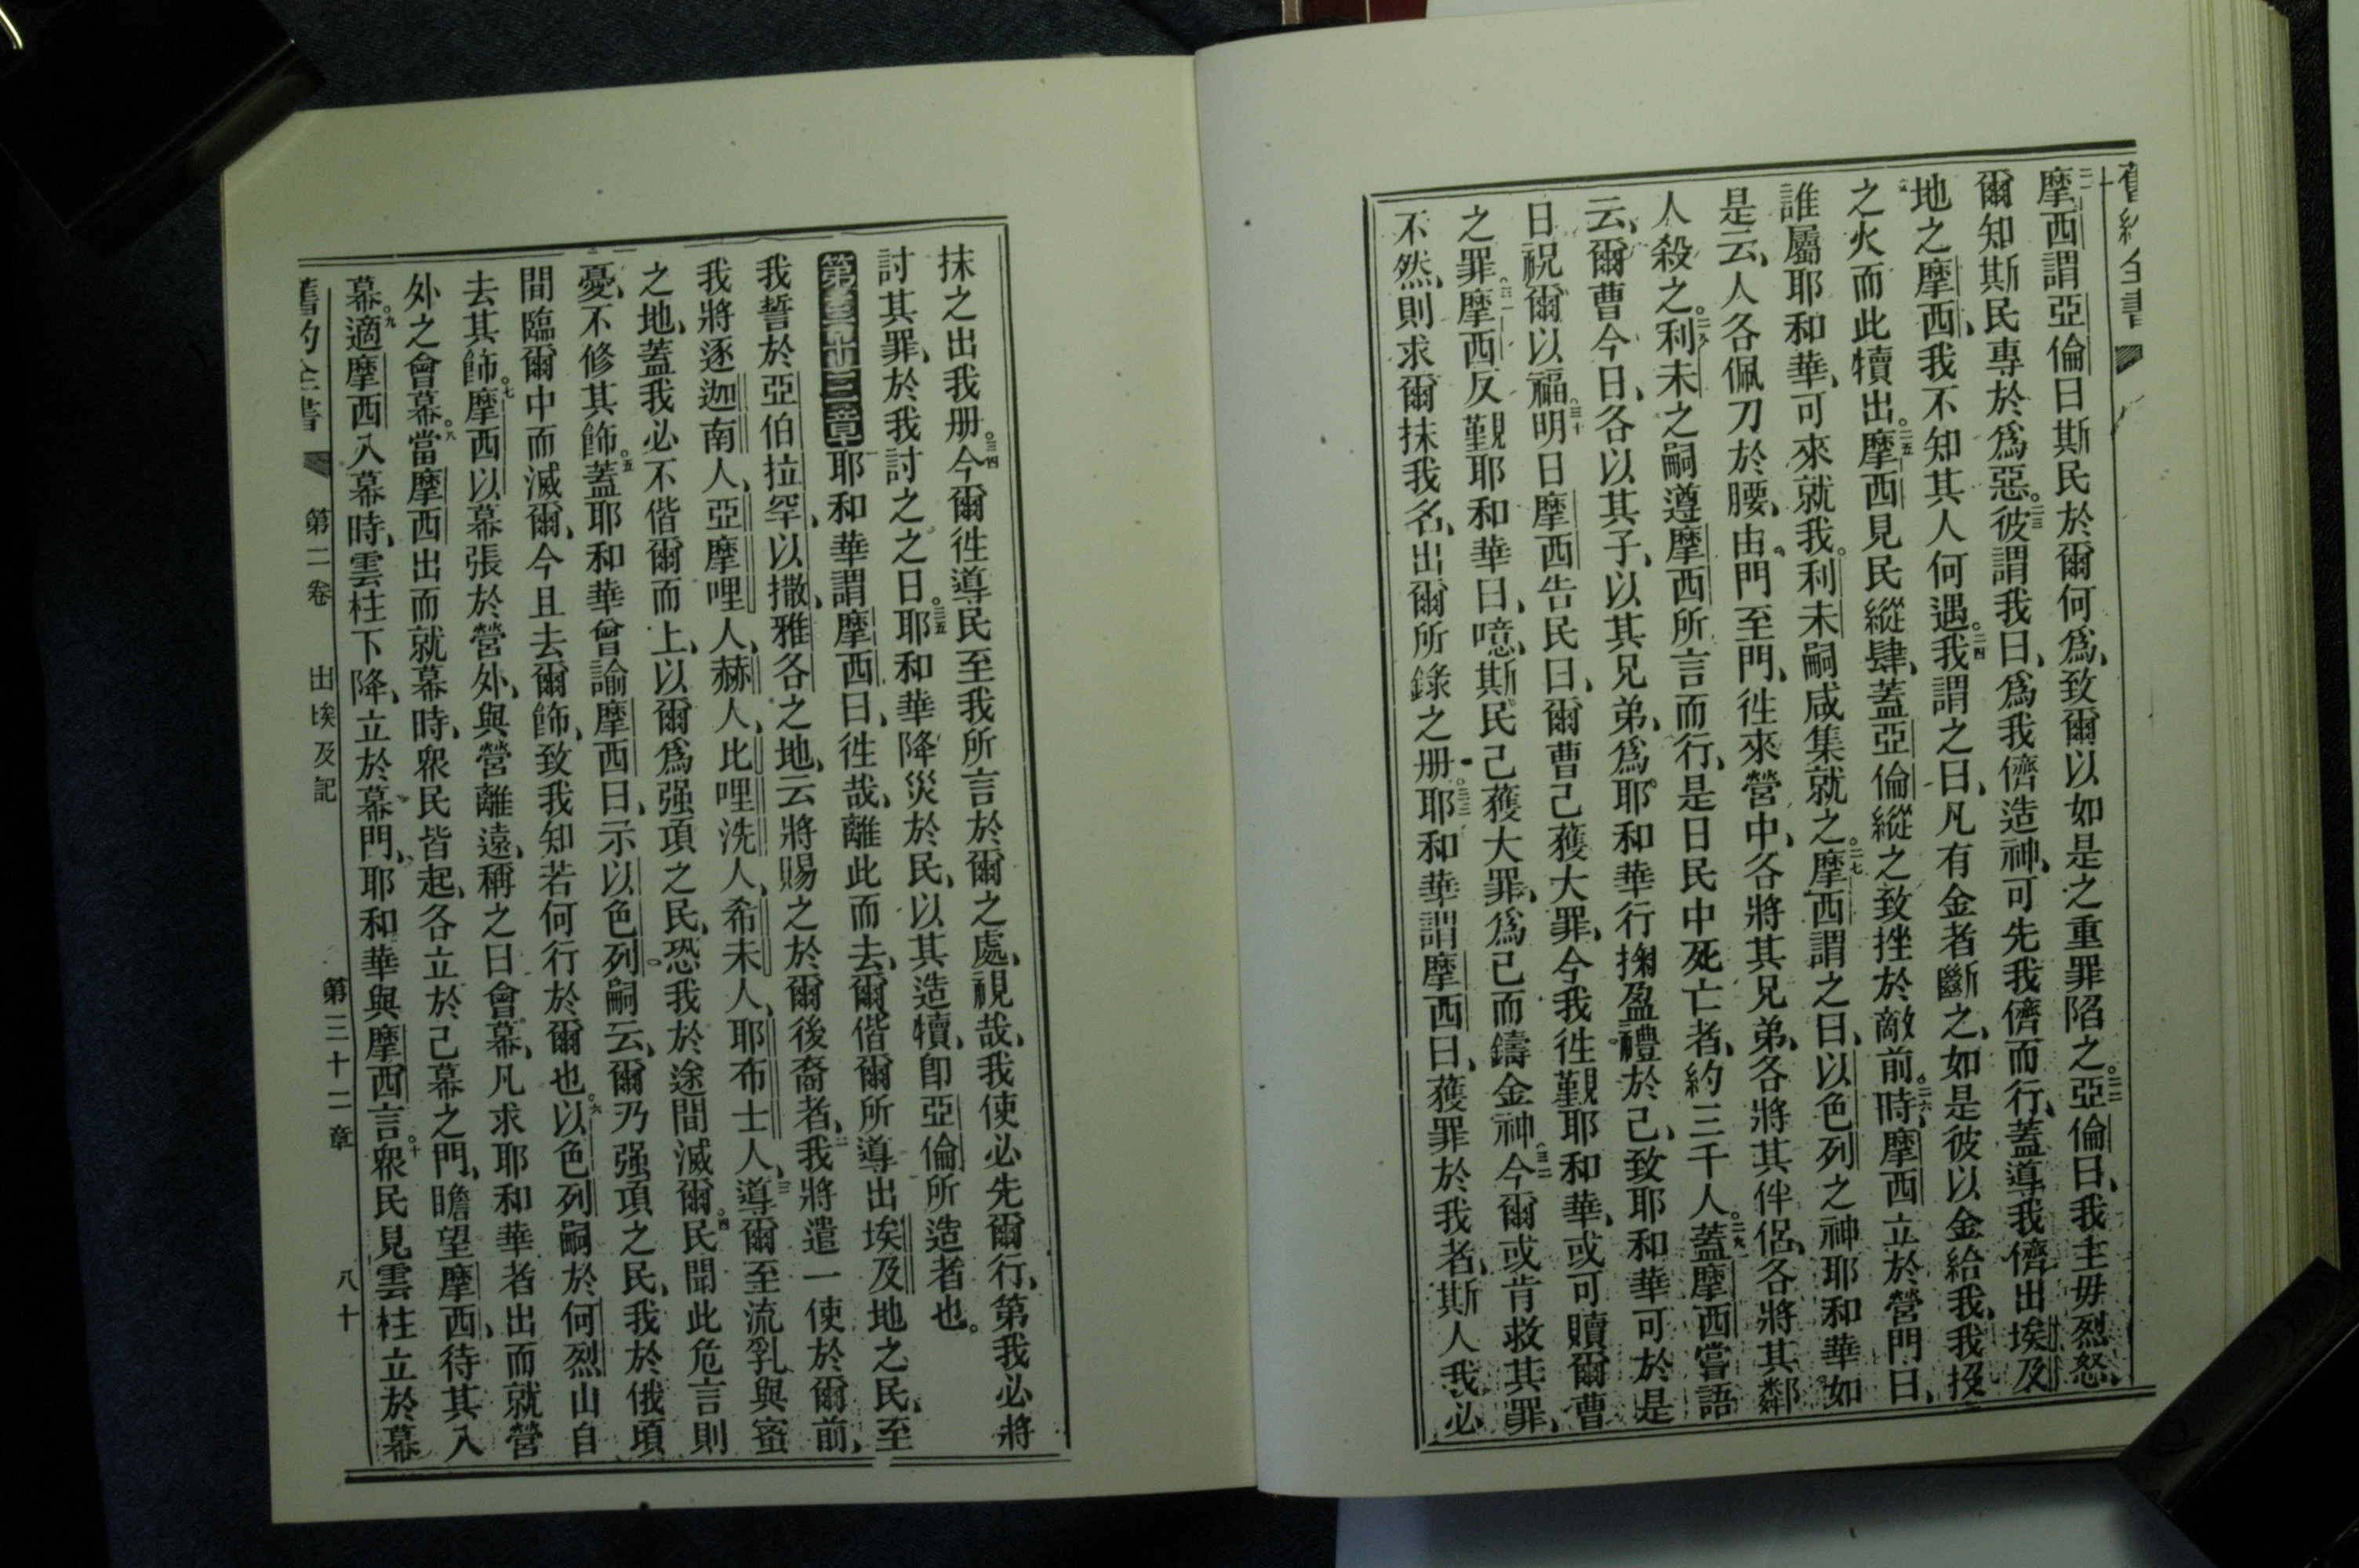 舊約全書
摩西謂亞倫曰斯民於爾何爲、致爾以如是之重罪陷之。二二亞倫曰、我主毋烈怒、
爾知斯民專於爲惡。二三彼謂我曰、爲我儕造神、可先我儕而行、蓋導我儕出埃及
地之摩西、我不知其人何遇。二四我謂之曰、凡有金者斷之、如是彼以金給我、我投
之火而此犢出。二五摩西見民縱肆、蓋亞倫縱之致挫於敵前。二六時摩西立於營門曰、
誰屬耶和華、可來就我。利未嗣咸集就之。二七摩西謂之曰、以色列之神耶和華如
是云、人各佩刀於腰、由門至門、徃來營中、各將其兄弟、各將其伴侶、各將其鄰
人殺之。二八利未之嗣遵摩西所言而行、是日民中死亡者、約三千人。二九蓋摩西嘗語
云、爾曹今日、各以其子、以其兄弟、爲耶和華行掬盈禮於己、致耶和華可於是
日祝爾以福。三十明日摩西告民曰、爾曹己獲大罪、今我徃覲耶和華、或可贖爾曹
之罪。三一摩西反覲耶和華曰、噫、斯民己獲大罪、爲己而鑄金神。三二今爾或肯救其罪、
不然、則求爾抹我名、出爾所錄之册。三三耶和華謂摩西曰、獲罪於我者、斯人我必
抹之出我册。三四今爾徃導民至我所言於爾之處、視哉、我使必先爾行、第我必將
討其罪、於我討之之日。三五耶和華降災於民、以其造犢、卽亞倫所造者也。
第三十三章 一耶和華謂摩西曰、徃哉、離此而去、爾偕爾所導出埃及地之民、至
我誓於亞伯拉罕、以撒、雅各之地、云將賜之於爾後裔者、二我將遣一使於爾前、
我將逐迦南人、亞摩哩人、赫人、比哩洗人、希未人、耶布士人、三導爾至流乳與蜜
之地、蓋我必不偕爾而上、以爾爲强項之民、恐我於途間滅爾。四民聞此危言則
憂、不修其飾。五蓋耶和華曾諭摩西曰、示以色列嗣云、爾乃强項之民、我於俄頃
間臨爾中而滅爾、今且去爾飾、致我知若何行於爾也。六以色列嗣於何烈山自
去其飾。七摩西以幕張於營外、與營離遠、稱之曰會幕、凡求耶和華者出而就營
外之會幕。八當摩西出而就幕時、衆民皆起、各立於己幕之門、瞻望摩西、待其入
幕。九適摩西入幕時、雲柱下降、立於幕門、耶和華與摩西言。十衆民見雲柱立於幕
舊約全書 第二卷 出埃及記 第三十二章 八十